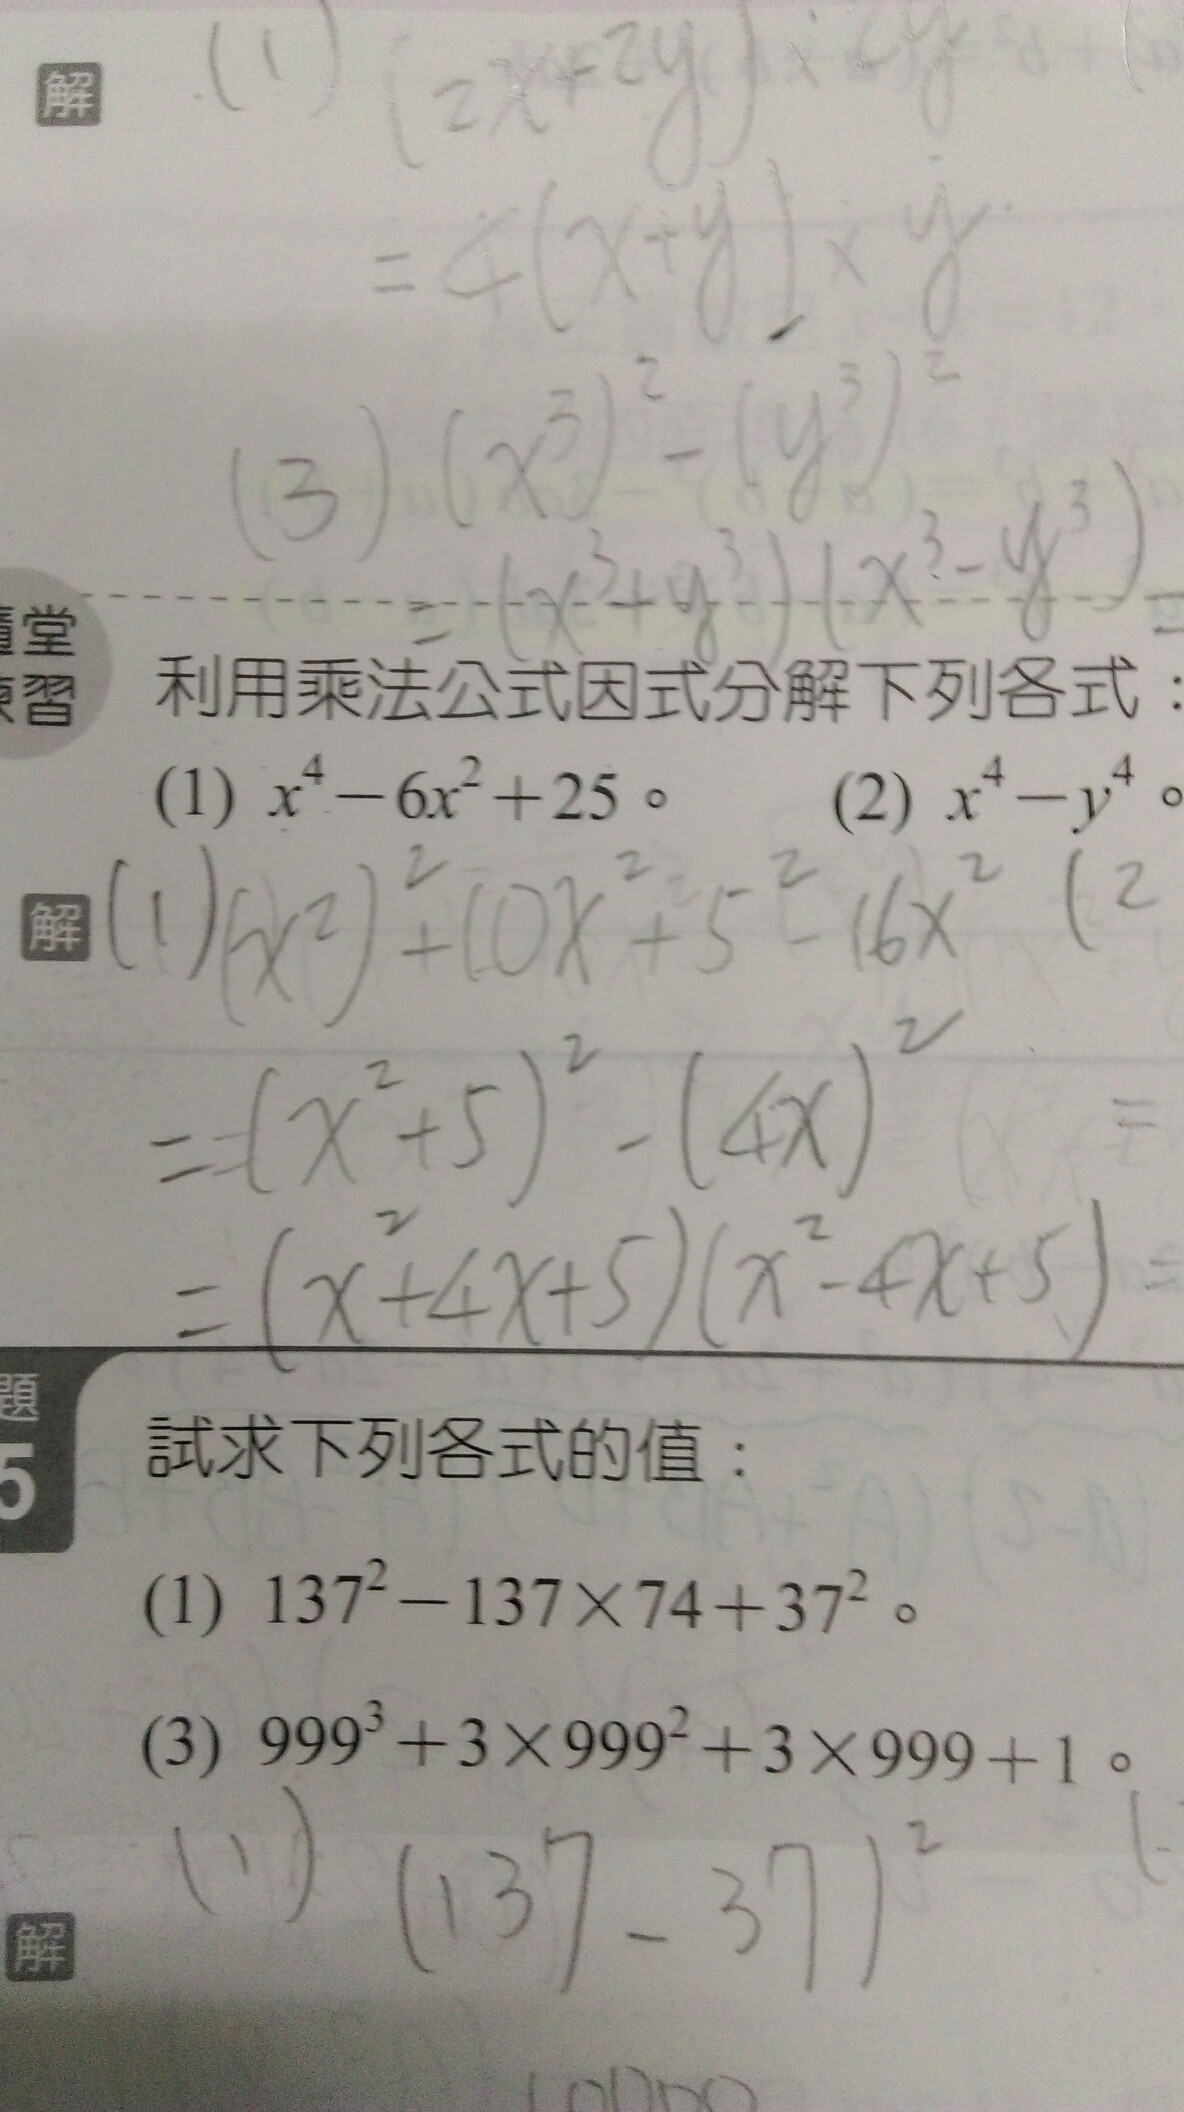 解 (1) (2x+2y)
= 4(x+y) × y
(3) (x³)² - (y³)²
= (x³+y³)(x³-y³)
隨堂練習
利用乘法公式因式分解下列各式：
(1) x⁴－6x²＋25。 (2) x⁴－y⁴。
解 (1) (x²)²+10x²+5²-16x² (2
= (x²+5)² - (4x)² =
= (x²+4x+5)(x²-4x+5) =
題 5
試求下列各式的值：
(1) 137²－137×74＋37²。
(3) 999³＋3×999²＋3×999＋1。
解 (1) (137-37)²
10000